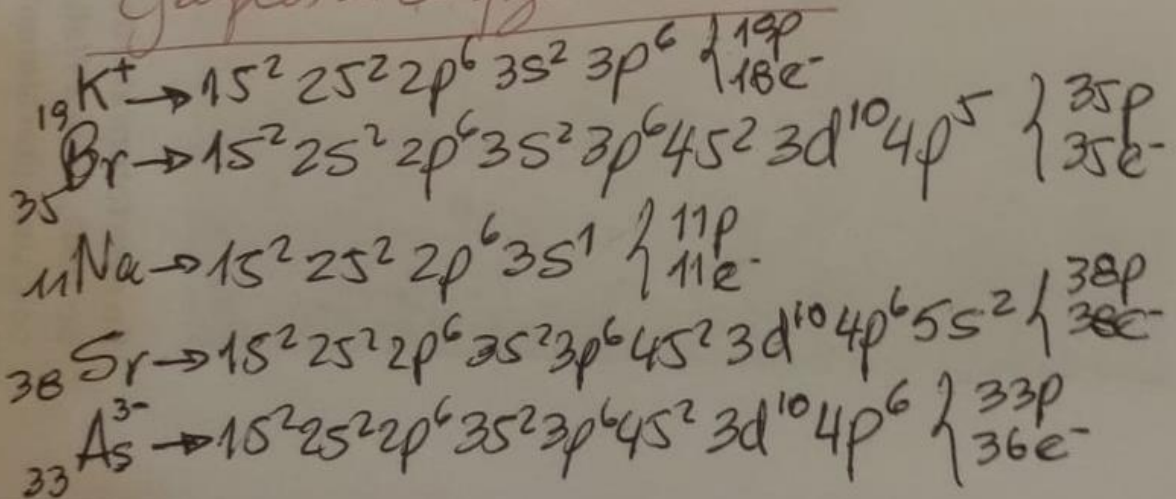 ₁₉K⁺ → 1s² 2s² 2p⁶ 3s² 3p⁶ { 19p 18e⁻
₃₅Br → 1s² 2s² 2p⁶ 3s² 3p⁶ 4s² 3d¹⁰ 4p⁵ { 35p 35e⁻
₁₁Na → 1s² 2s² 2p⁶ 3s¹ { 11p 11e⁻
₃₈Sr → 1s² 2s² 2p⁶ 3s² 3p⁶ 4s² 3d¹⁰ 4p⁶ 5s² { 38p 38e⁻
₃₃As³⁻ → 1s² 2s² 2p⁶ 3s² 3p⁶ 4s² 3d¹⁰ 4p⁶ { 33p 36e⁻